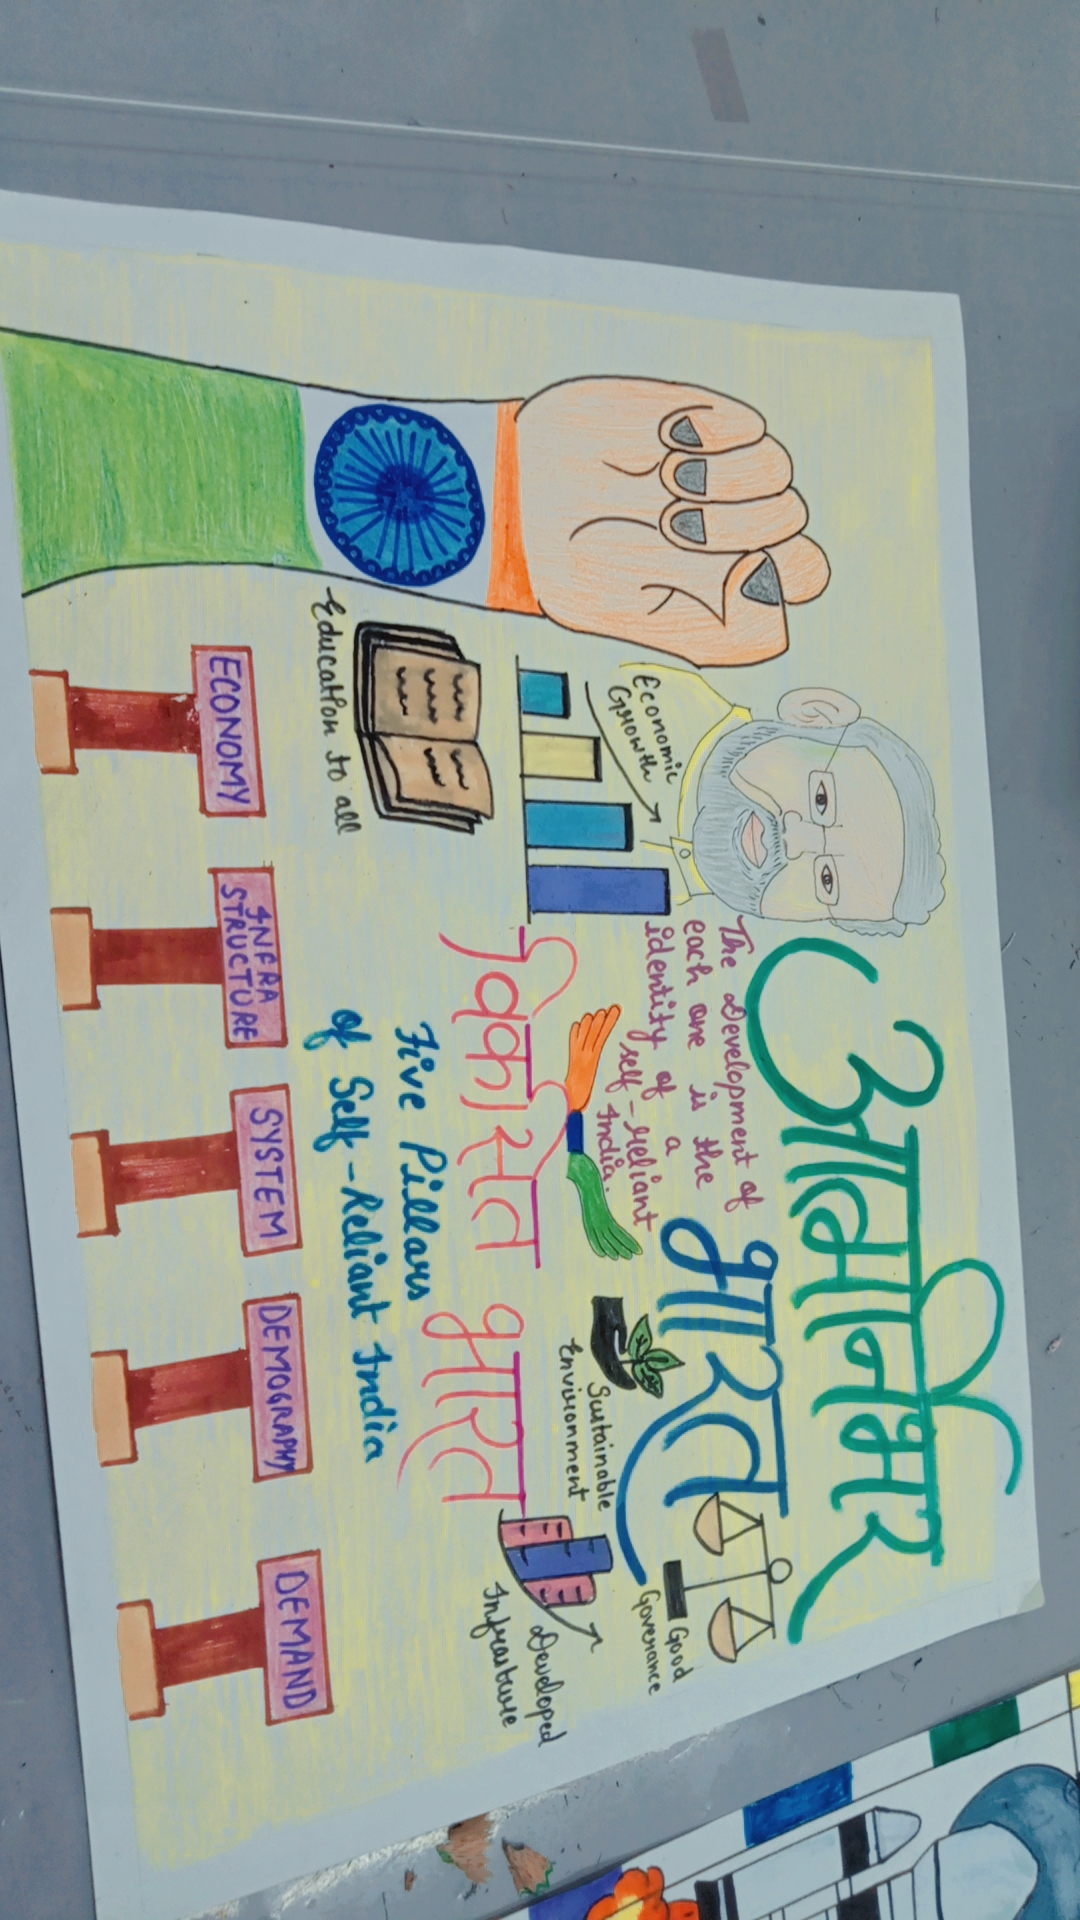 आत्मनिर्भर
भारत
The Development of
each one is the
identity of a
self-reliant
India.
Economic
Growth
Good
Governance
Sustainable
Environment
विकसित भारत
Developed
Infrasture
Education to all
Five Pillars
of Self-Reliant India
ECONOMY
INFRA
STRUCTURE
SYSTEM
DEMOGRAPHY
DEMAND